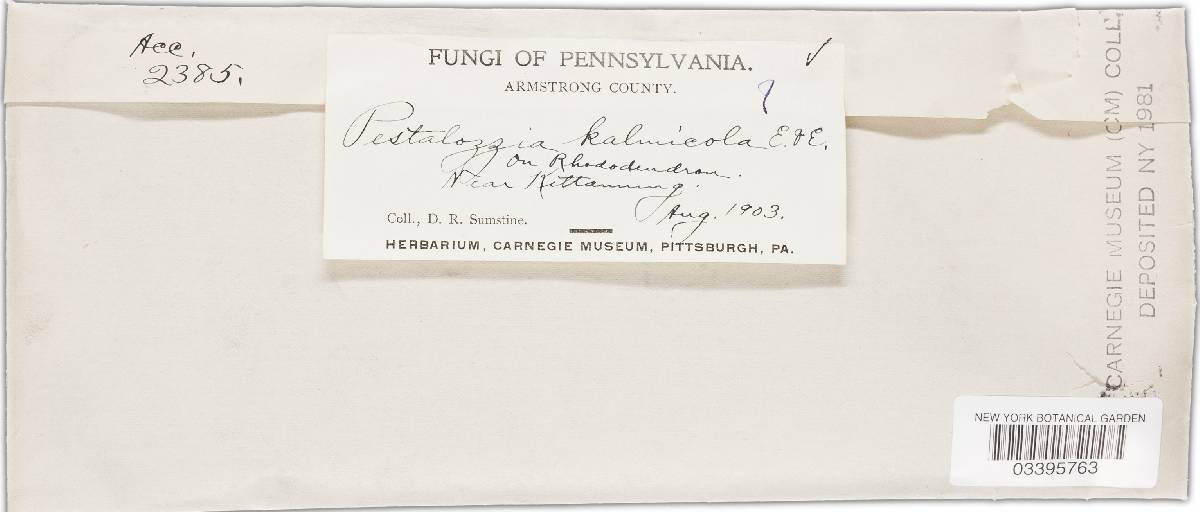 Acc.
2385.
FUNGI OF PENNSYLVANIA.
ARMSTRONG COUNTY.
?
Pestalozzia kalmicola E. & E.
On Rhododendron.
Near Kittanning.
Aug. 1903.
Coll., D. R. Sumstine.
HERBARIUM, CARNEGIE MUSEUM, PITTSBURGH, PA.
CARNEGIE MUSEUM (CM) COLL.
DEPOSITED NY 1981
NEW YORK BOTANICAL GARDEN
03395763